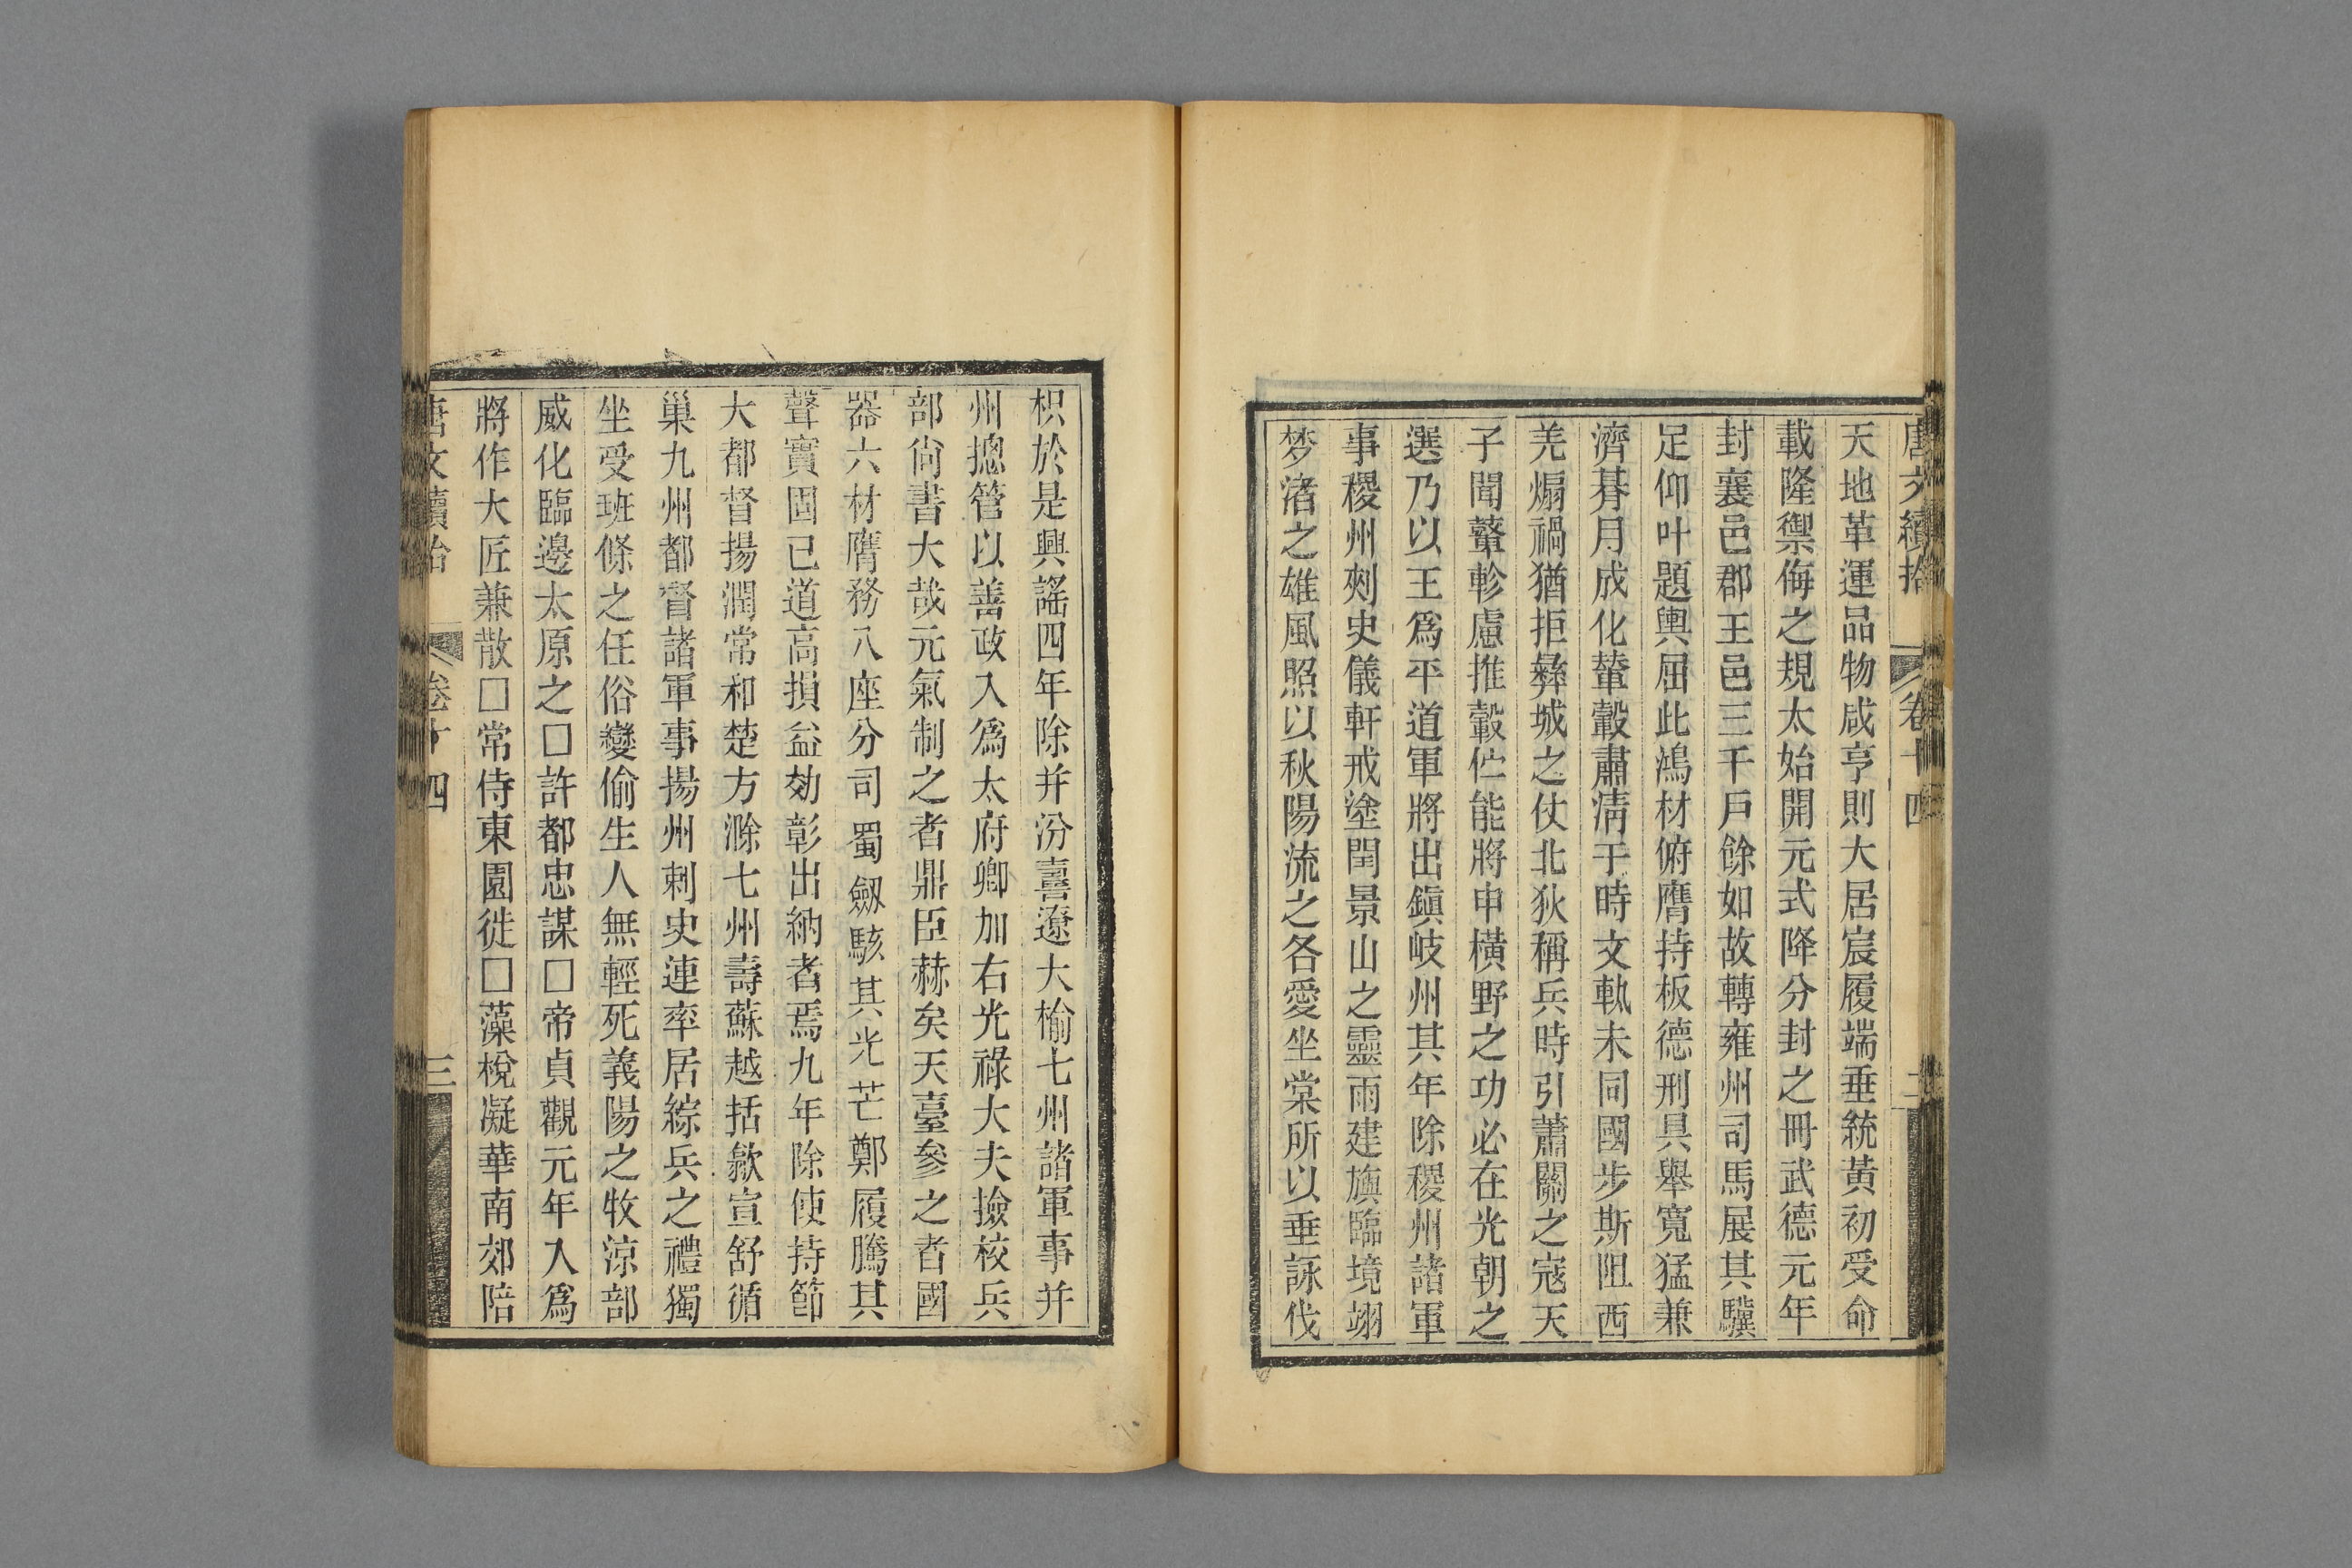 唐文續拾 卷十四 二
天地革運品物咸亨則大居宸履端垂統黃初受命
載隆禦侮之規太始開元式降分封之冊武德元年
封襄邑郡王邑三千戶餘如故轉雍州司馬展其驥
足仰叶題輿屈此鴻材俯膺持板德刑具舉寬猛兼
濟朞月成化輦轂肅淸于時文軌未同國步斯阻西
羌煽禍猶拒彝城之仗北狄稱兵時引蕭關之寇天
子聞鼙軫慮推轂伫能將申橫野之功必在光朝之
選乃以王爲平道軍將出鎭岐州其年除稷州諸軍
事稷州刾史儀軒戒塗閏景山之靈雨建旟臨境翊
梦渚之雄風照以秋陽流之各愛坐棠所以垂詠伐
枳於是興謠四年除并汾嘉遼大榆七州諸軍事并
州摠管以善政入爲太府卿加右光祿大夫撿校兵
部尙書大哉元氣制之者鼎臣赫矣天臺參之者國
器六材膺務八座分司蜀劔駭其光芒鄭履騰其
聲實固已道高損益効彰出納者焉九年除使持節
大都督揚潤常和楚方滁七州壽蘇越括歙宣舒循
巢九州都督諸軍事揚州刺史連率居綜兵之禮獨
坐受班條之任俗變偷生人無輕死義陽之牧涼部
威化臨邊太原之□許都忠謀□帝貞觀元年入爲
將作大匠兼散□常侍東園徙□藻棁凝華南郊陪
唐文續拾 卷十四 三